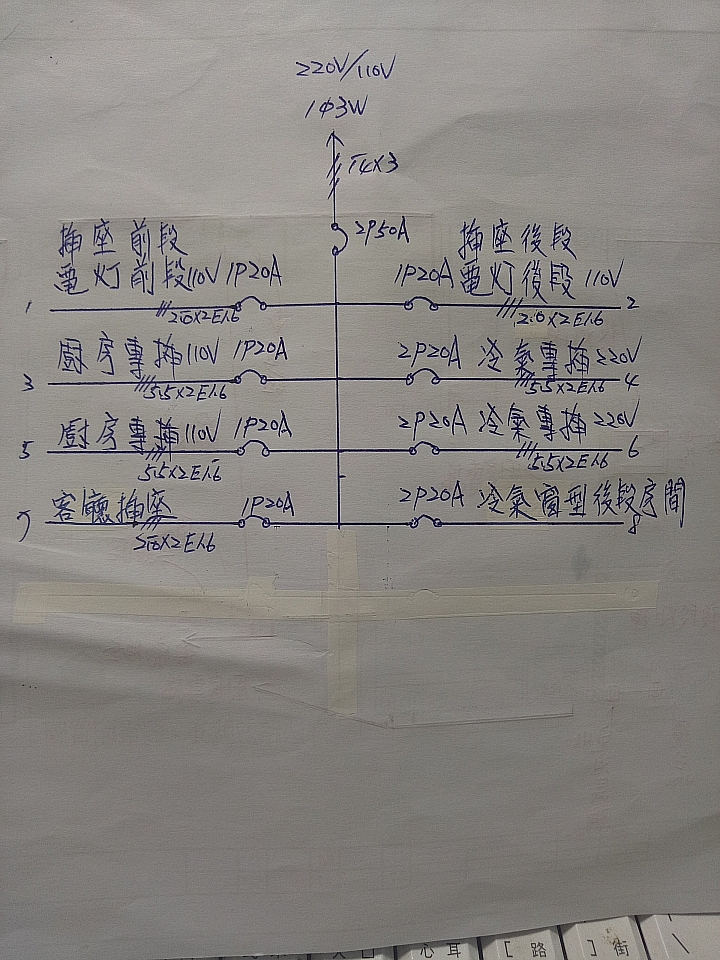 220V/110V
1φ3W
14X3
2P50A
插座前段
電灯前段110V 1P20A
1
2.0X2E1.6
插座後段
1P20A 電灯後段 110V
2
2.0X2E1.6
廚房專插110V 1P20A
3
5.5X2E1.6
2P20A 冷氣專插220V
4
5.5X2E1.6
廚房專插110V 1P20A
5
5.5X2E1.6
2P20A 冷氣專插220V
6
5.5X2E1.6
客廳插座 1P20A
7
2.0X2E1.6
2P20A 冷氣窗型後段房間
8
心耳
[ 路
] 街
\